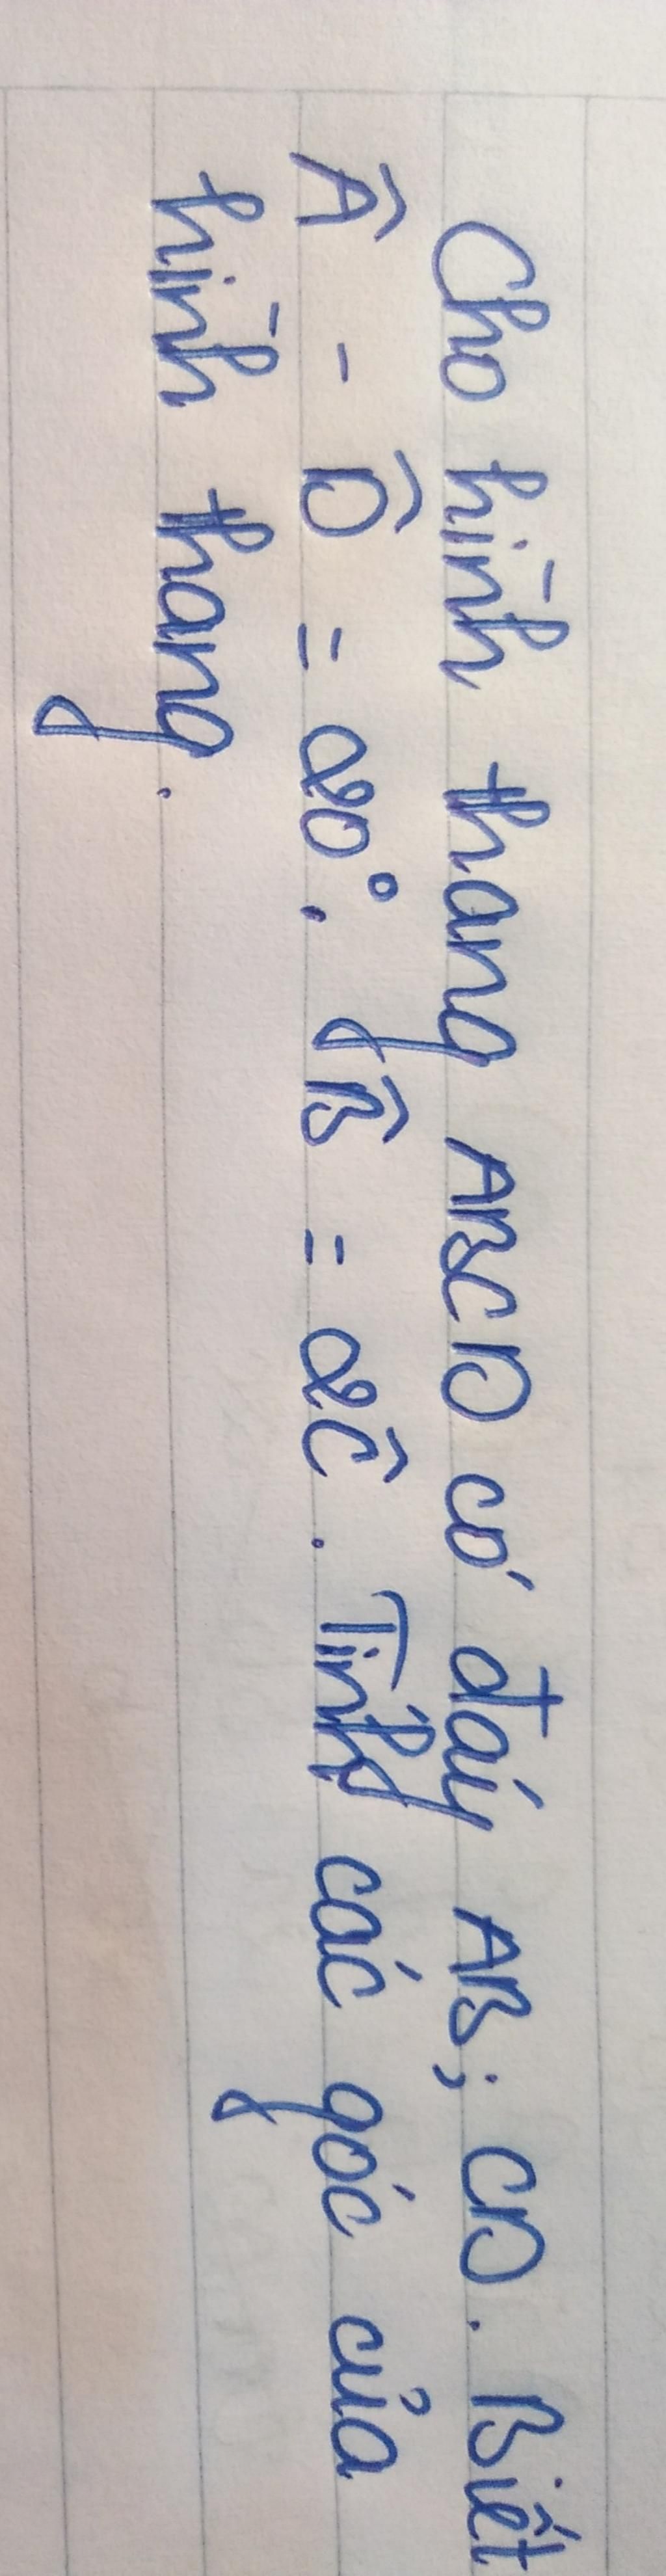 Cho hình thang ABCD có đáy AB; CD. Biết
Â - D̂ = 20°. B̂ = 2Ĉ. Tính các góc của
hình thang.